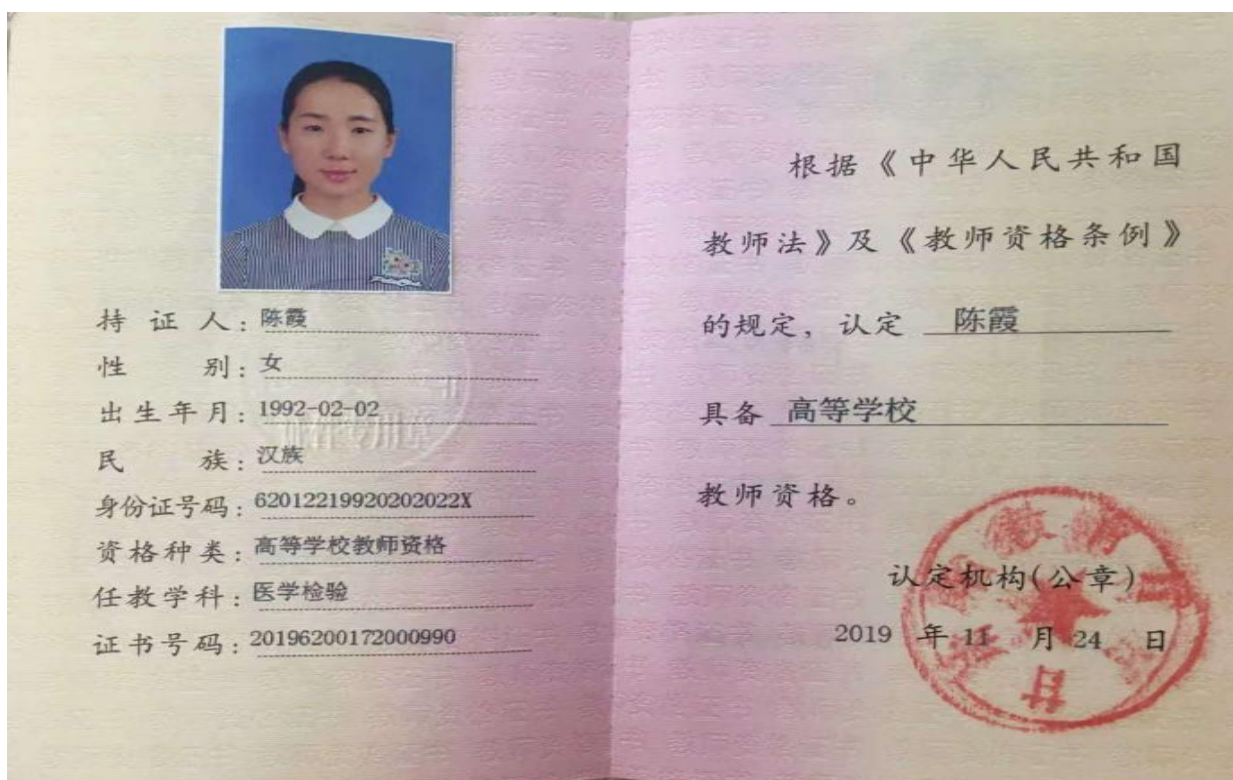 持证人：陈霞
性别：女
出生年月：1992-02-02
民族：汉族
身份证号码：62012219920202022X
资格种类：高等学校教师资格
任教学科：医学检验
证书号码：20196200172000990
根据《中华人民共和国
教师法》及《教师资格条例》
的规定，认定 陈霞
具备 高等学校
教师资格。
认定机构(公章)
2019 年 11 月 24 日